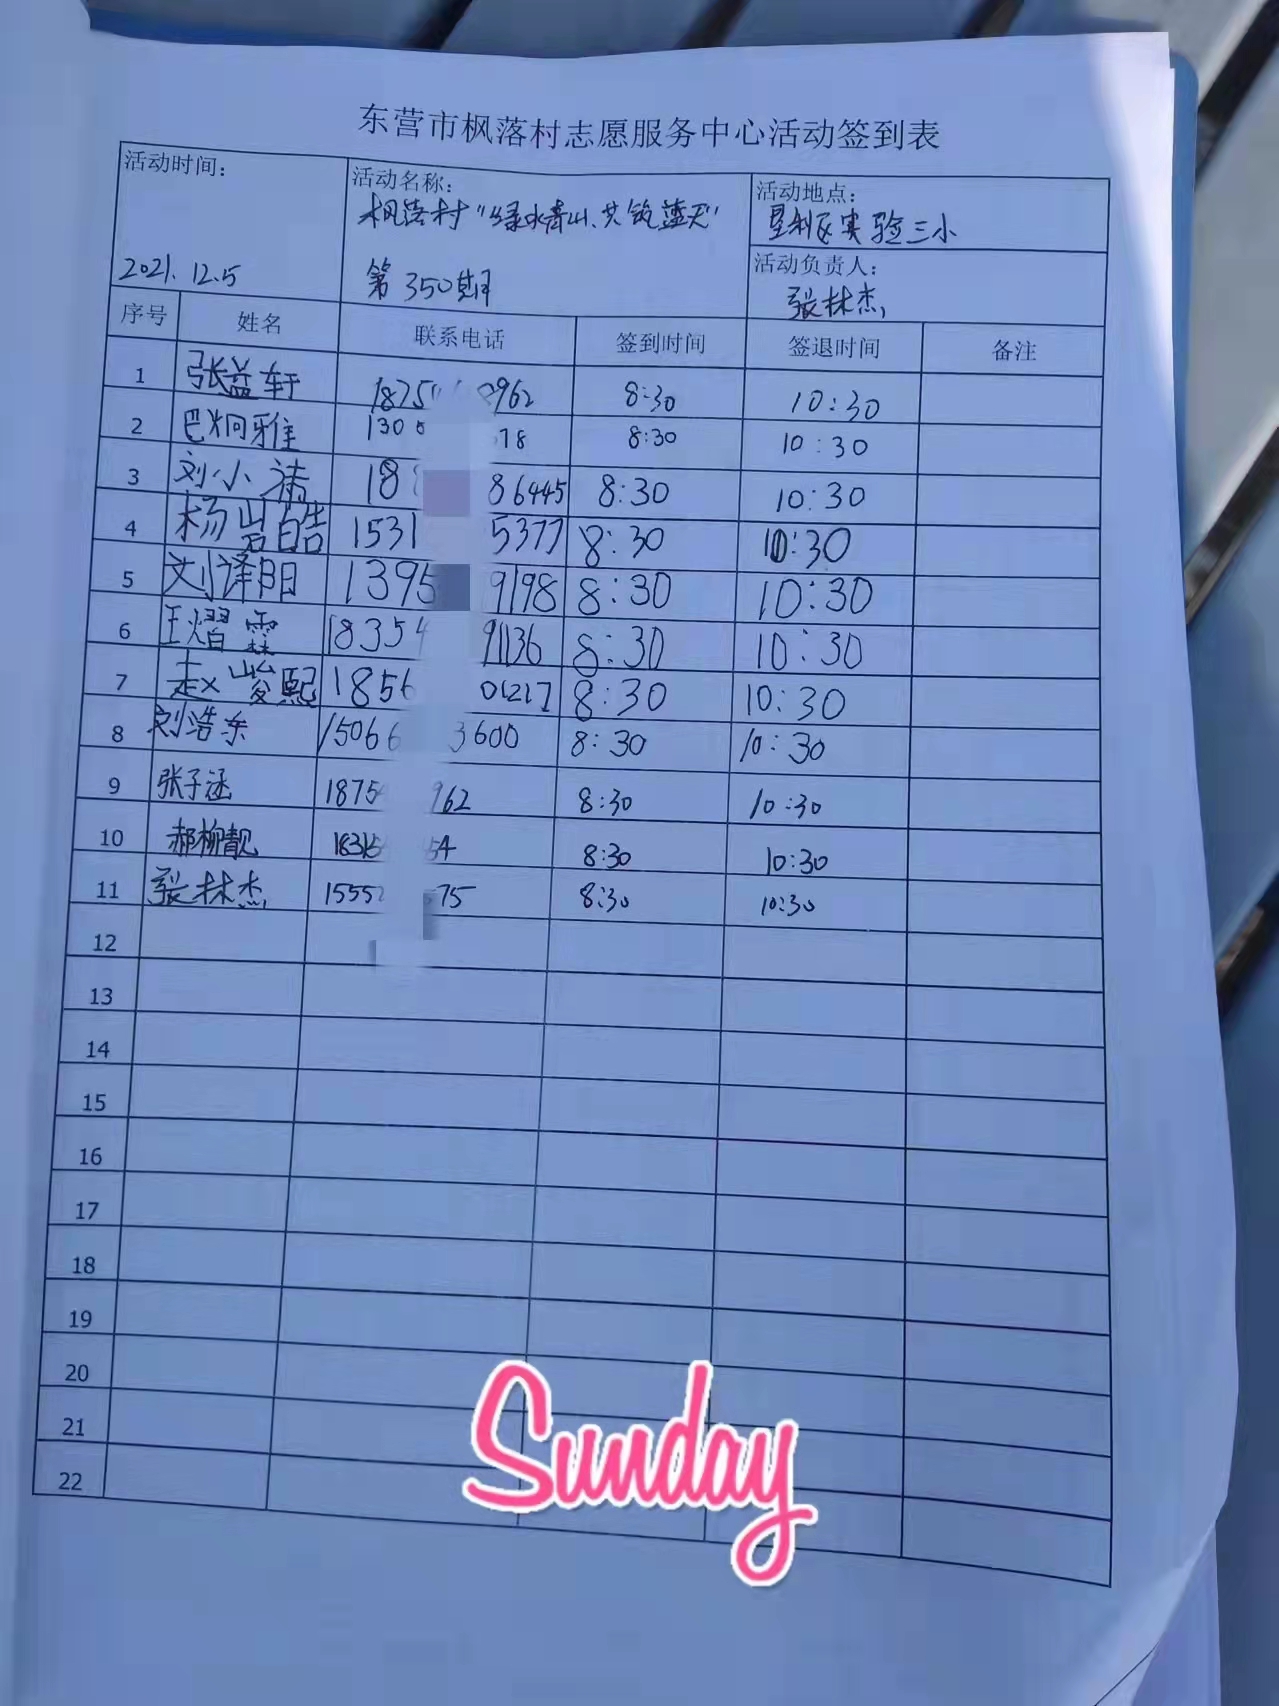 东营市枫落村志愿服务中心活动签到表
活动时间: 活动名称: 活动地点:
枫落村"绿水青山、共筑蓝天" 垦利区实验三小
2021.12.5 第350期 活动负责人:
张林杰
序号 姓名 联系电话 签到时间 签退时间 备注
1 张益轩 8:30 10:30
2 巴炯雅 8:30 10:30
3 刘小 86445 8:30 10:30
4 杨岩皓 1531 5377 8:30 10:30
5 刘泽阳 1395 9198 8:30 10:30
6 王熠霖 1835 9136 8:30 10:30
7 赵峻熙 1856 01217 8:30 10:30
8 刘浩东 15066 3600 8:30 10:30
9 张子涵 1875 962 8:30 10:30
10 郝柳靓 54 8:30 10:30
11 张林杰 1555 75 8:30 10:30
12
13
14
15
16
17
18
19
20
21
22
Sunday